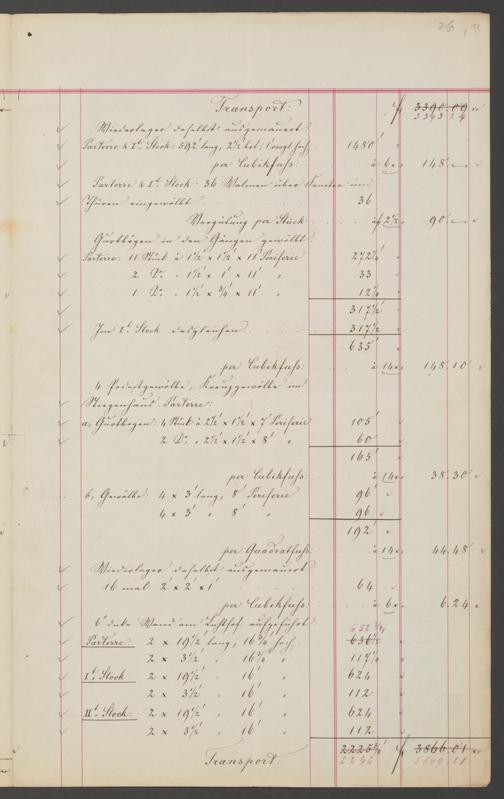 26
Transport: f 3390.09
3393.24
Wiederlager daselbst ausgemauert:
Parterre & 1t. Stock: 592' lang, 2½ brt., 1' hoch 1480'
per Cubikfuss: à 6x 148.—
Parterre & 1t. Stock: 36 Walmen über Fenster und
Thüren eingewölbt 36
Vergütung per Stück à f 2½ 90.—
Gurtbögen in den Gängen gewölbt:
Parterre: 11 Stück à 1½' x 1½' x 11' Periferie 272¼'
2 Do. " 1½' x 1' x 11' " 33
1 Do. " 1½' x ¾' x 11' " 12⅜
317½'
Im 1t. Stock desgleichen 317½'
635'
per Cubikfuss: à 14x 148.10
4 Podestgewölbe, Kreuzgewölbe im
Stiegenhaus Parterre:
a, Gurtbogen: 4 Stück à 2½' x 1½' x 7' Periferie 105'
2 Do. " 2½' x 1½' x 8' " 60
165'
per Cubikfuss: à 14x 38.30
b, Gewölbe: 4 x 3' lang, 8' Periferie 96'
4 x 3' " 8' " 96
192'
per Quadratfuss: à 14x 44.48
Wiederlager daselbst ausgemauert
16 mal 2' x 2' x 1' 64
per Cubikfuss: à 6x 6.24
6" dicke Wand am Lichthof aufgeführt
652
Parterre: 2 x 19½' lang, 16¾' hoch 636
2 x 3½' " 16¾' " 117¼
1t. Stock 2 x 19½' " 16' " 624
2 x 3½' " 16' " 112
IIt. Stock 2 x 19½' " 16' " 624
2 x 3½' " 16' " 112
2225¾' f 3866.01
Transport: 2242 3869.21